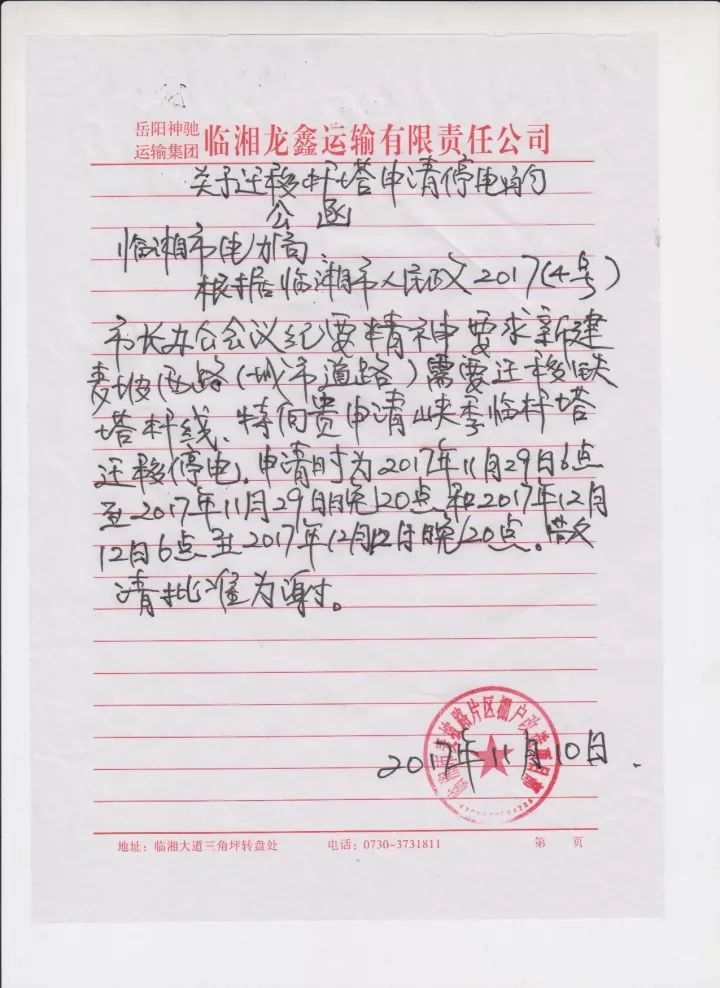 岳阳神驰
运输集团 临湘龙鑫运输有限责任公司
关于迁移杆塔申请停电的
公函
临湘市电力局、
根据临湘市人民政2017(4号)
市长办公会议纪要精神要求新建
麦坡西路(城市道路)需要迁移铁
塔杆线、特向贵申请峡李临杆塔
迁移停电。申请时为2017年11月29日6点
至2017年11月29日晚20点和2017年12月
12日6点至2017年12月12日晚20点。
请批准为谢。
路片区棚户改
2017年11月10日
地址：临湘大道三角坪转盘处 电话：0730-3731811 第 页